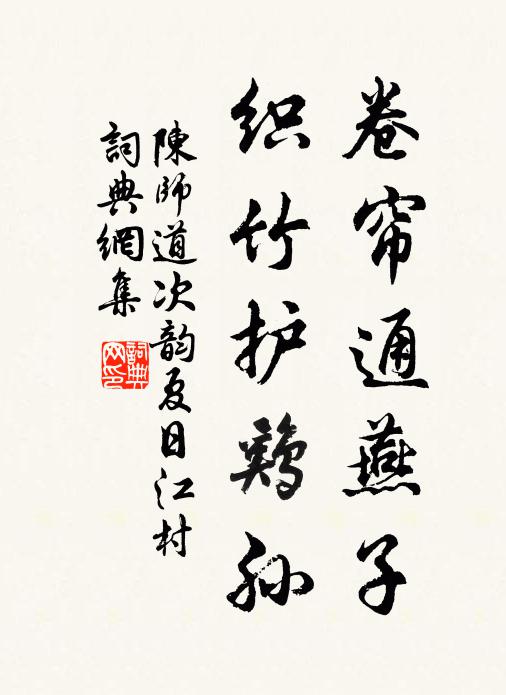 卷帘通燕子
织竹护鷄孙
陳師道次韵夏日江村
詞典網集
詞典網印